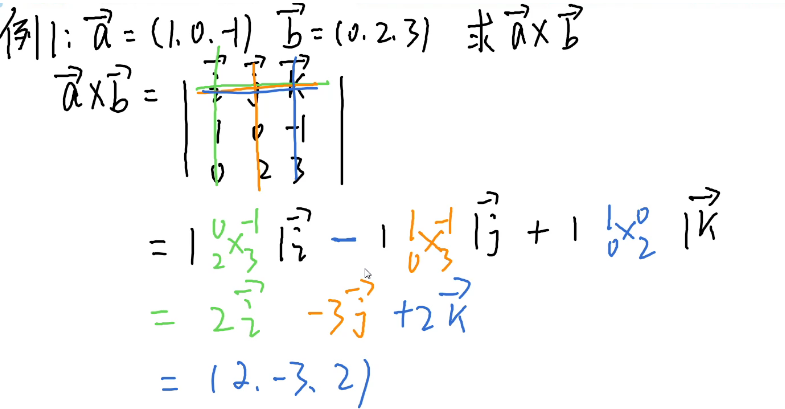 例1: a⃗ = (1.0.-1) b⃗ = (0.2.3) 求 a⃗×b⃗
a⃗×b⃗ = | i⃗ j⃗ k⃗ |
1 0 -1
0 2 3
= | 0 -1 | i⃗ - | 1 -1 | j⃗ + | 1 0 | k⃗
2 3 0 3 0 2
= 2i⃗ -3j⃗ +2k⃗
= (2.-3.2)